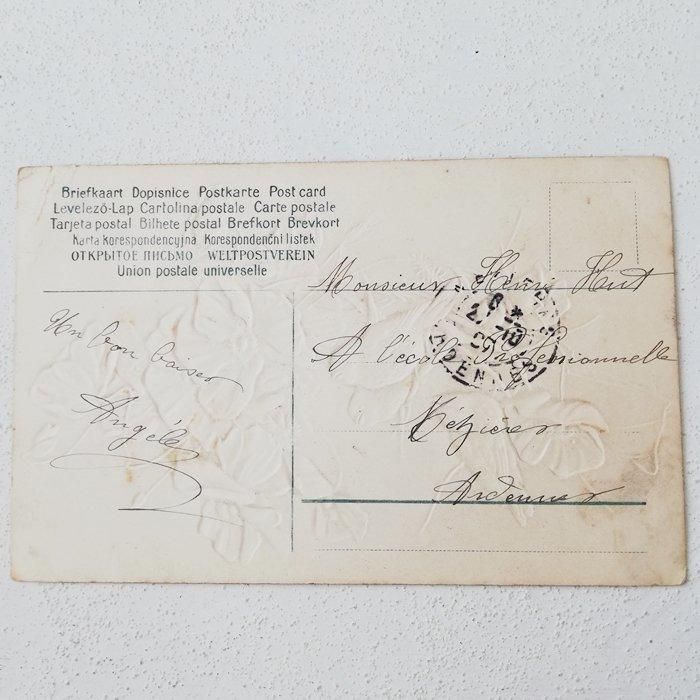 Briefkaart Dopisnice Postkarte Post card
Levelező-Lap Cartolina postale Carte postale
Tarjeta postal Bilhete postal Brefkort Brevkort
Karta korespondencyjna Korespondenční listek
ОТКРЫТОЕ ПИСЬМО WELTPOSTVEREIN
Union postale universelle
Un bon baiser
Angèle
Monsieur Henri Hut
A l'école Professionnelle
Mézières
Ardennes